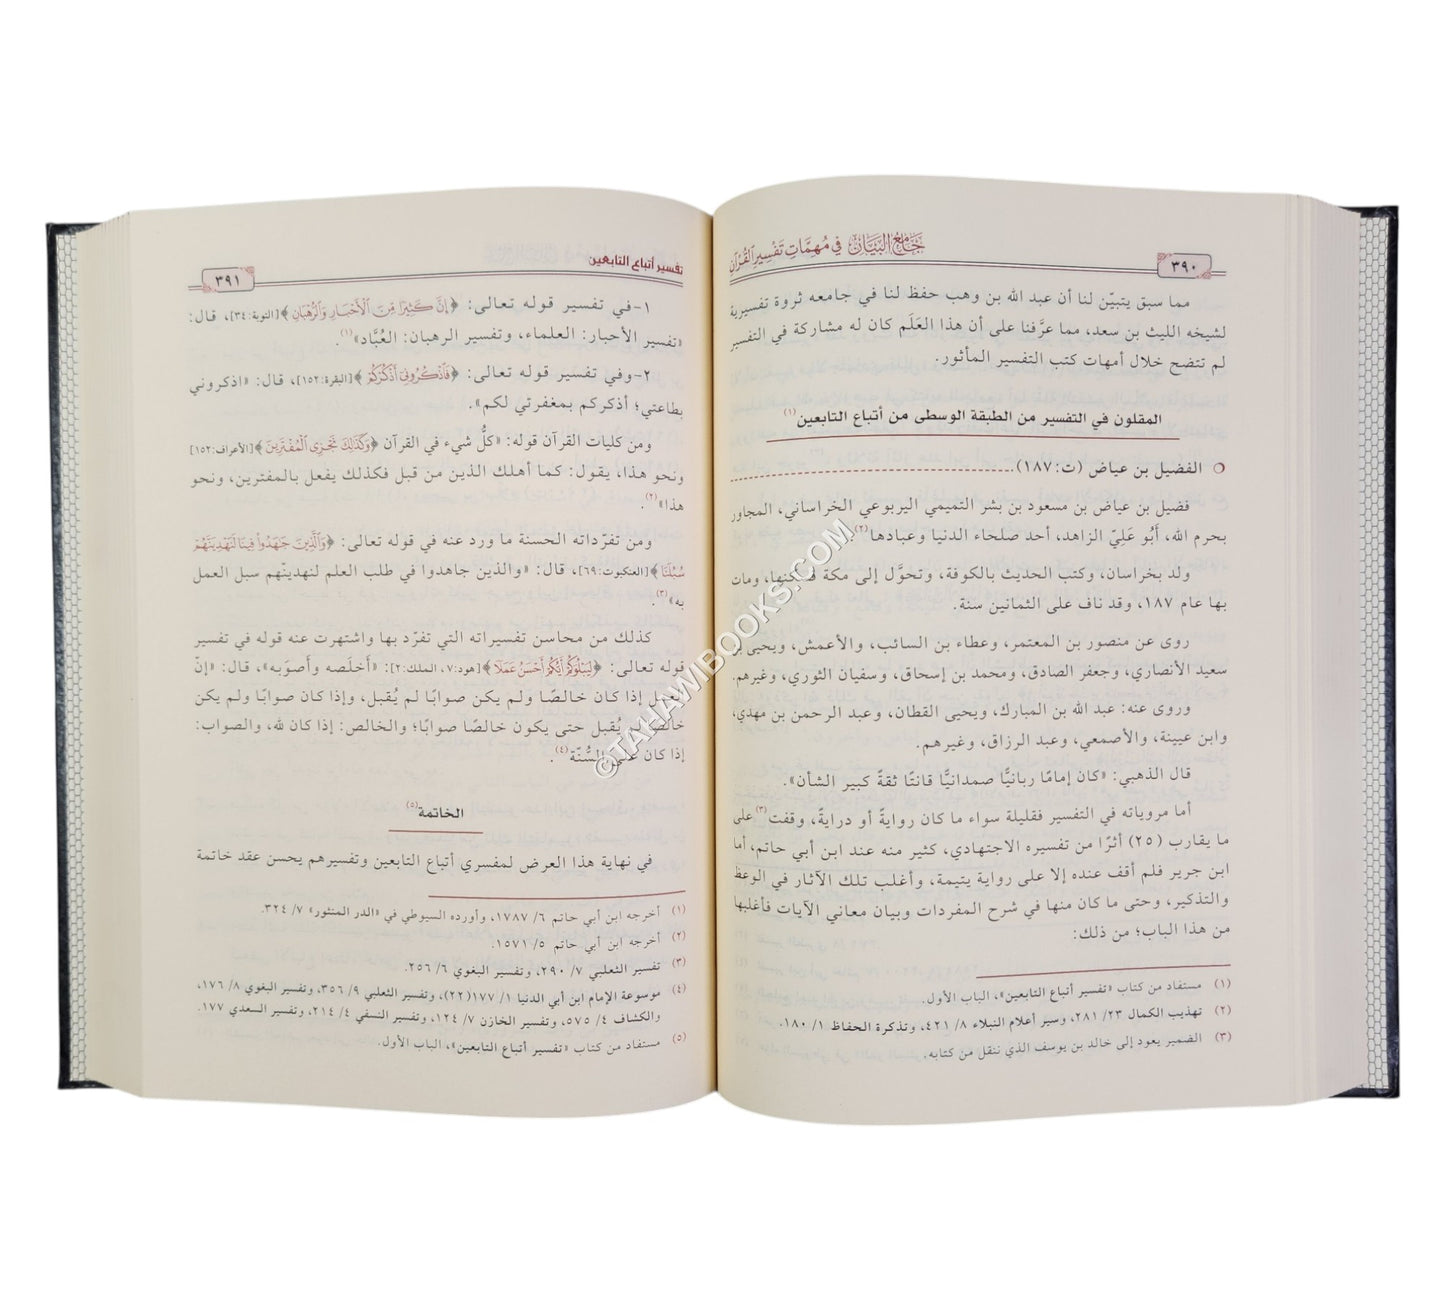 ٣٩٠
جَامِعُ البَيَانِ فِي مُهِمَّاتِ تَفْسِيرِ القُرْآنِ
مما سبق يتبيّن لنا أن عبد الله بن وهب حفظ لنا في جامعه ثروة تفسيرية
لشيخه الليث بن سعد، مما عرَّفنا على أن هذا العَلَم كان له مشاركة في التفسير
لم تتضح خلال أمهات كتب التفسير المأثور.
المقلون في التفسير من الطبقة الوسطى من أتباع التابعين(١)
○ الفضيل بن عياض (ت:١٨٧)
فضيل بن عياض بن مسعود بن بشر التميمي اليربوعي الخراساني، المجاور
بحرم الله، أَبُو عَلِيّ الزاهد، أحد صلحاء الدنيا وعبادها(٢).
ولد بخراسان، وكتب الحديث بالكوفة، وتحوَّل إلى مكة فسكنها، ومات
بها عام ١٨٧، وقد ناف على الثمانين سنة.
روى عن منصور بن المعتمر، وعطاء بن السائب، والأعمش، ويحيى بن
سعيد الأنصاري، وجعفر الصادق، ومحمد بن إسحاق، وسفيان الثوري، وغيرهم.
وروى عنه: عبد الله بن المبارك، ويحيى القطان، وعبد الرحمن بن مهدي،
وابن عيينة، والأصمعي، وعبد الرزاق، وغيرهم.
قال الذهبي: «كان إمامًا ربانيًّا صمدانيًّا قانتًا ثقةً كبير الشأن».
أما مروياته في التفسير فقليلة سواء ما كان روايةً أو درايةً، وقفت(٣) على
ما يقارب (٢٥) أثرًا من تفسيره الاجتهادي، كثير منه عند ابن أبي حاتم، أما
ابن جرير فلم أقف عنده إلا على رواية يتيمة، وأغلب تلك الآثار في الوعظ
والتذكير، وحتى ما كان منها في شرح المفردات وبيان معاني الآيات فأغلبها
من هذا الباب؛ من ذلك:
(١) مستفاد من كتاب «تفسير أتباع التابعين»، الباب الأول.
(٢) تهذيب الكمال ٢٣/ ٢٨١، وسير أعلام النبلاء ٨/ ٤٢١، وتذكرة الحفاظ ١/ ١٨٠.
(٣) الضمير يعود إلى خالد بن يوسف الذي ننقل من كتابه.
تفسير أتباع التابعين
٣٩١
١-في تفسير قوله تعالى: ﴿إِنَّ كَثِيرًا مِّنَ ٱلْأَحْبَارِ وَٱلرُّهْبَانِ﴾[التوبة:٣٤]، قال:
«تفسير الأحبار: العلماء، وتفسير الرهبان: العُبَّاد»(١).
٢-وفي تفسير قوله تعالى: ﴿فَٱذْكُرُونِىٓ أَذْكُرْكُمْ﴾[البقرة:١٥٢]، قال: «اذكروني
بطاعتي؛ أذكركم بمغفرتي لكم».
ومن كليات القرآن قوله: «كلُّ شيء في القرآن ﴿وَكَذَٰلِكَ نَجْزِى ٱلْمُفْتَرِينَ﴾[الأعراف:١٥٢]
ونحو هذا، يقول: كما أهلك الذين من قبل فكذلك يفعل بالمفترين، ونحو
هذا»(٢).
ومن تفرّداته الحسنة ما ورد عنه في قوله تعالى: ﴿وَٱلَّذِينَ جَٰهَدُوا۟ فِينَا لَنَهْدِيَنَّهُمْ
سُبُلَنَا﴾[العنكبوت:٦٩]، قال: «والذين جاهدوا في طلب العلم لنهدينّهم سبل العمل
به»(٣).
كذلك من محاسن تفسيراته التي تفرّد بها واشتهرت عنه قوله في تفسير
قوله تعالى: ﴿لِيَبْلُوَكُمْ أَيُّكُمْ أَحْسَنُ عَمَلًا﴾[هود:٧، الملك:٢]: «أخلَصه وأصوَبه»، قال: «إنّ
العمل إذا كان خالصًا ولم يكن صوابًا لم يُقبل، وإذا كان صوابًا ولم يكن
خالصًا لم يُقبل حتى يكون خالصًا صوابًا؛ والخالص: إذا كان لله، والصواب:
إذا كان على السُّنّة(٤).
الخاتمة(٥)
في نهاية هذا العرض لمفسري أتباع التابعين وتفسيرهم يحسن عقد خاتمة
(١) أخرجه ابن أبي حاتم ٦/ ١٧٨٧، وأورده السيوطي في «الدر المنثور» ٧/ ٣٢٤.
(٢) أخرجه ابن أبي حاتم ٥/ ١٥٧١.
(٣) تفسير الثعلبي ٧/ ٢٩٠، وتفسير البغوي ٦/ ٢٥٦.
(٤) موسوعة الإمام ابن أبي الدنيا ١/ ١٧٧(٢٢)، وتفسير الثعلبي ٩/ ٣٥٦، وتفسير البغوي ٨/ ١٧٦،
والكشاف ٤/ ٥٧٥، وتفسير الخازن ٧/ ١٢٤، وتفسير النسفي ٤/ ٢١٤، وتفسير السعدي ١٧٧.
(٥) مستفاد من كتاب «تفسير أتباع التابعين»، الباب الأول.
©TAHAWIBOOKS.COM